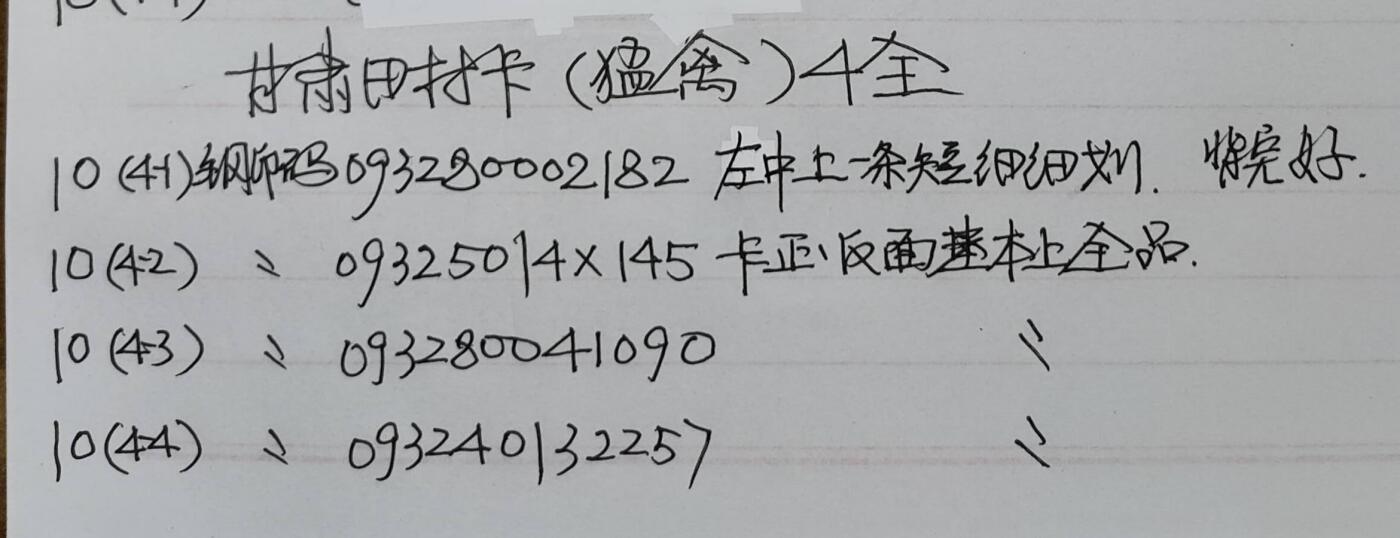 甘肃田村卡(猛禽)4全
10(4-1)钢印码093280002182 左中上一条短细细划. 背完好.
10(4-2) 〃 09325014×145 卡正、反面基本上全品.
10(4-3) 〃 093280041090 〃
10(4-4) 〃 093240132257 〃